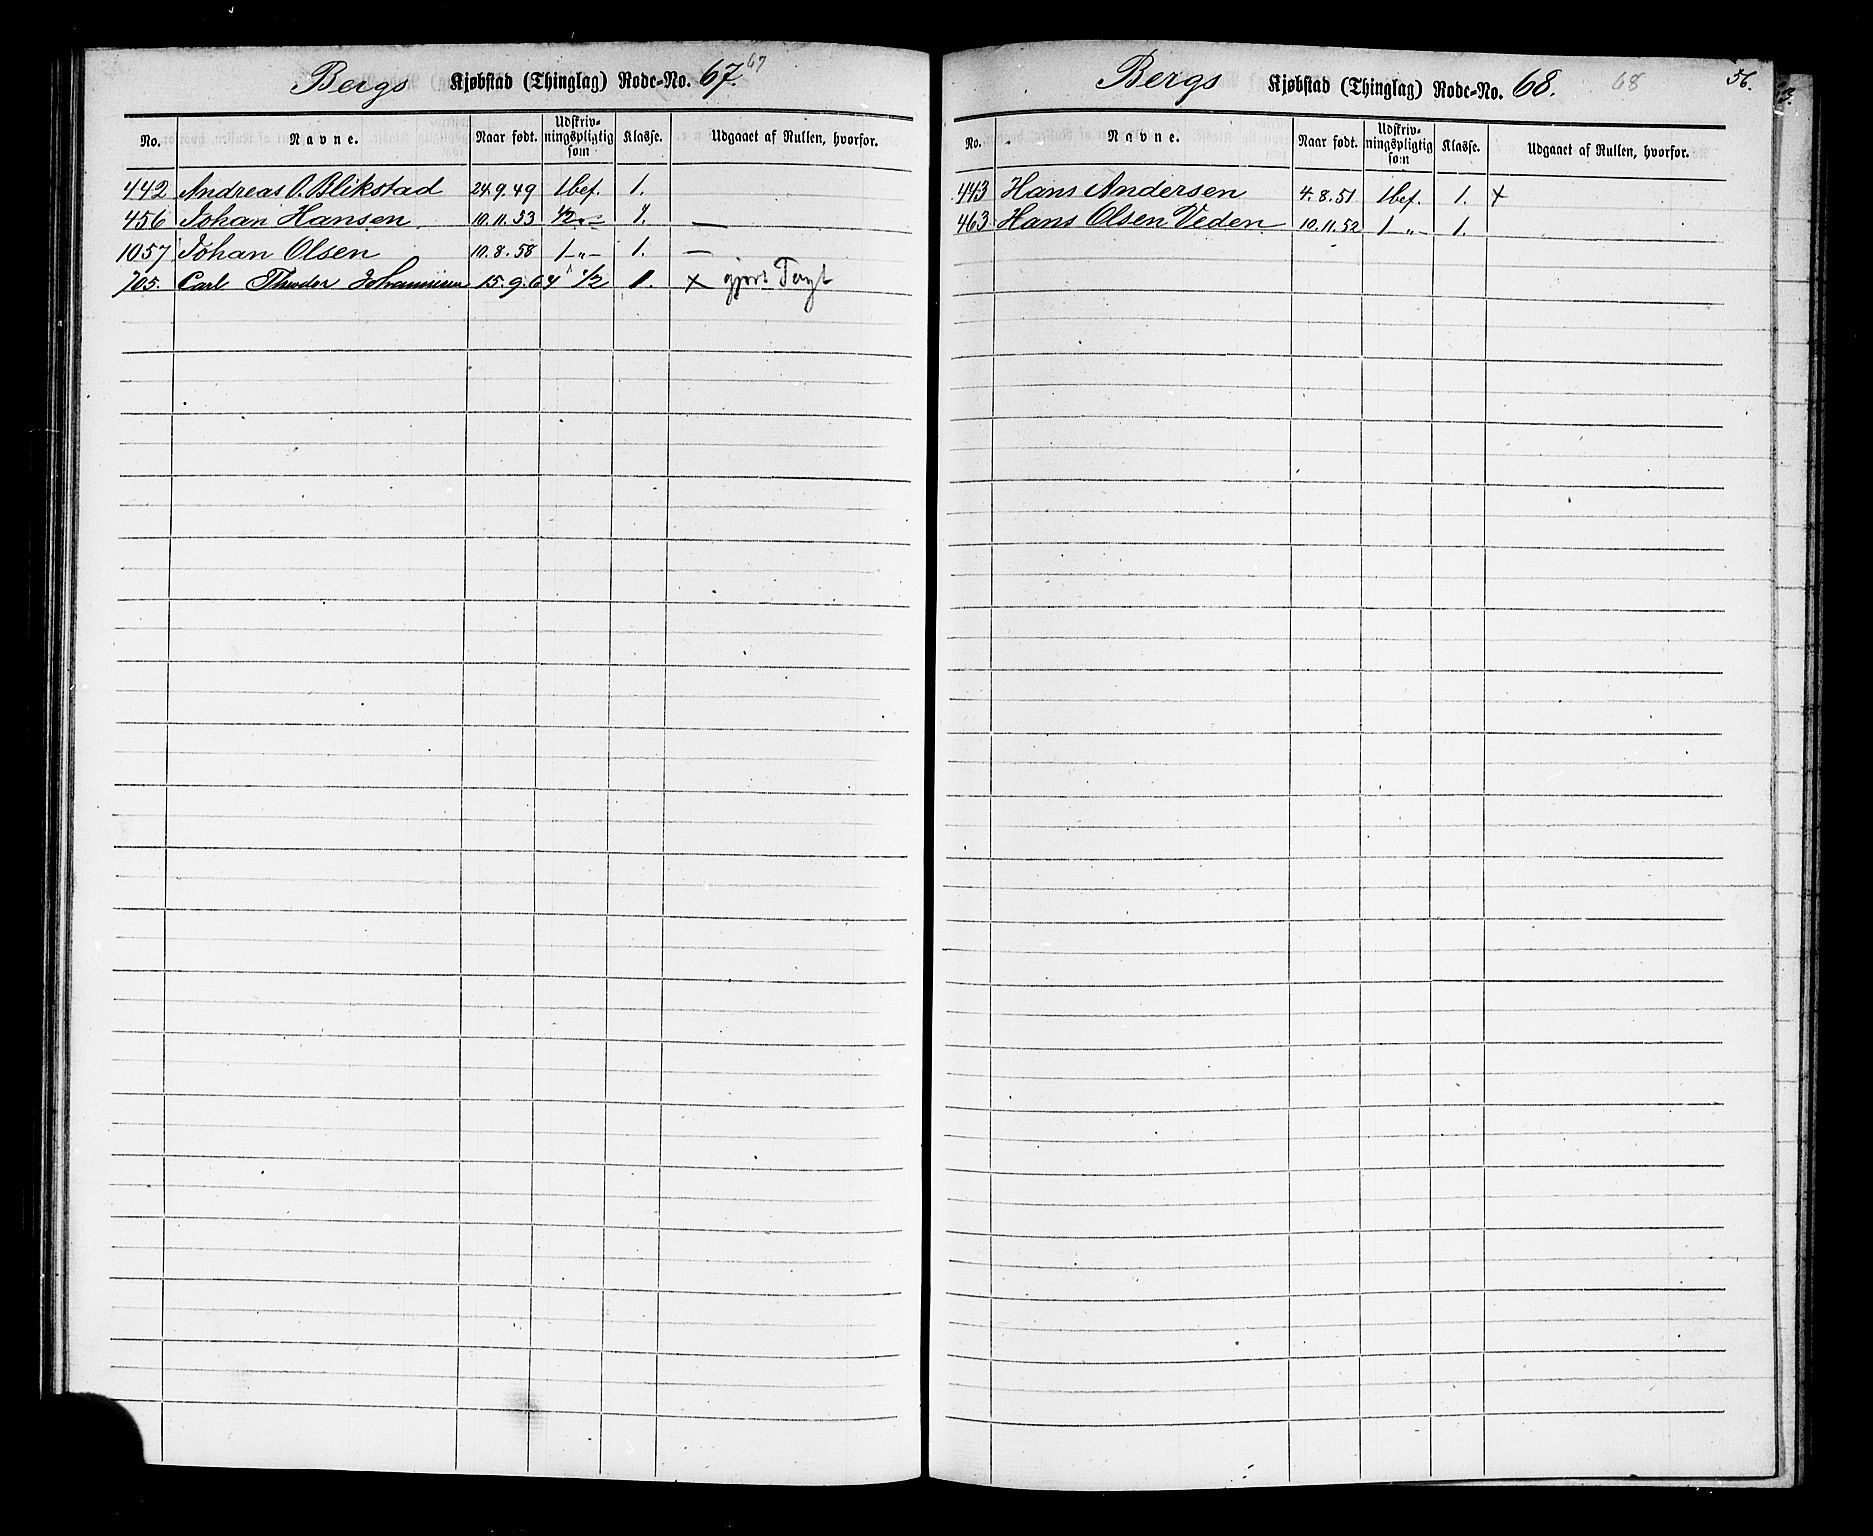 Bergs Kjøbstad (Thinglag) Rode-No. 67. 67
No. Navne. Naar født. Udskrivningspligtig som Klasse. Udgaaet af Rullen, hvorfor.
442 Andreas O. Blikstad 24.9.49 1 bef. 1.
456 Johan Hansen. 10.11.53 1/2 -„- 1. —
1057 Johan Olsen 10.8.58 1 -„- 1. —
705. Carl Theodor Johannisen 15.9.64 1/2 1. x gjort Togt
Bergs Kjøbstad (Thinglag) Rode-No. 68. 68 56.
No. Navne. Naar født. Udskrivningspligtig som Klasse. Udgaaet af Rullen, hvorfor.
443 Hans Andersen 4.8.51 1 bef. 1. x
463 Hans Olsen Veden 10.11.52 1 -„- 1.